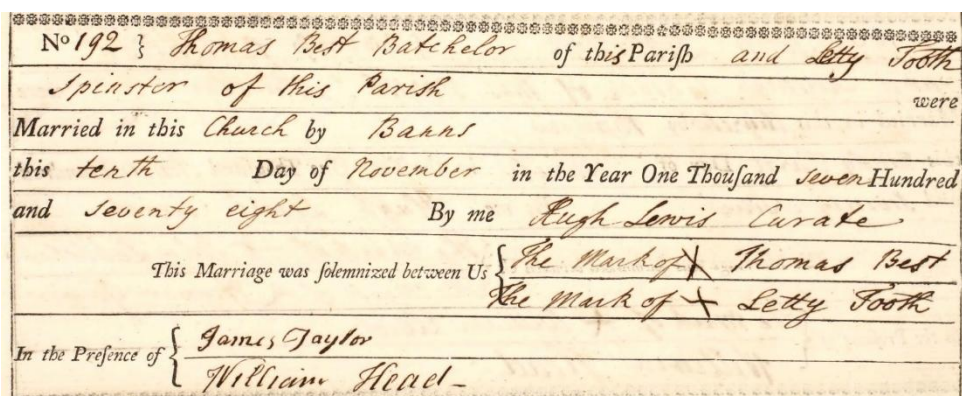 No 192 } Thomas Best Batchelor of this Pariſh and Letty Tooth
Spinster of this Parish were
Married in this Church by Banns
this tenth Day of November in the Year One Thouſand seven Hundred
and seventy eight By me Hugh Lewis Curate
This Marriage was ſolemnized between Us { The Mark of X Thomas Best
The Mark of X Letty Tooth
In the Preſence of { James Taylor
William Head